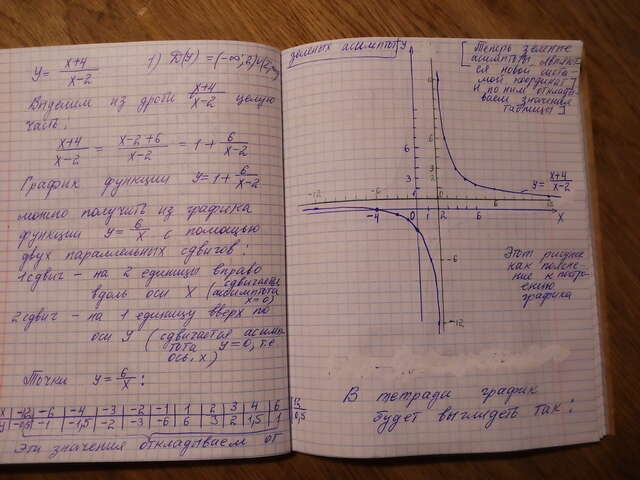 y = x+4/x-2   1) D(y) = (-∞; 2)∪(2;
Выделим из дроби x+4/x-2 целую
часть.
x+4/x-2 = x-2+6/x-2 = 1 + 6/x-2
График функции y = 1 + 6/x-2
можно получить из графика
функции y = 6/x с помощью
двух параллельных сдвигов:
1 сдвиг - на 2 единицы вправо
вдоль оси X (сдвигается
асимптота
x=0)
2 сдвиг - на 1 единицу вверх по
оси У (сдвигается асимп-
тота y=0, т.е
ось x)
Точки y = 6/x :
x | -12 | -6 | -4 | -3 | -2 | -1 | 1 | 2 | 3 | 4 | 6 | 12
y | -0,5 | -1 | -1,5 | -2 | -3 | -6 | 6 | 3 | 2 | 1,5 | 1 | 0,5
Эти значения откладываем от
зеленых асимптот
[Теперь зеленые
асимптоты являют-
ся новой систе-
мой координат
И по ним отклады-
ваем значения
таблицы]
y
12
6
6
3
3
2
y = x+4/x-2
-12
-6
-4
0
1
2
6
12
X
-6
-12
Этот рисунок
как поясне-
ние к постро-
ению
графика
В тетради график
будет выглядеть так: